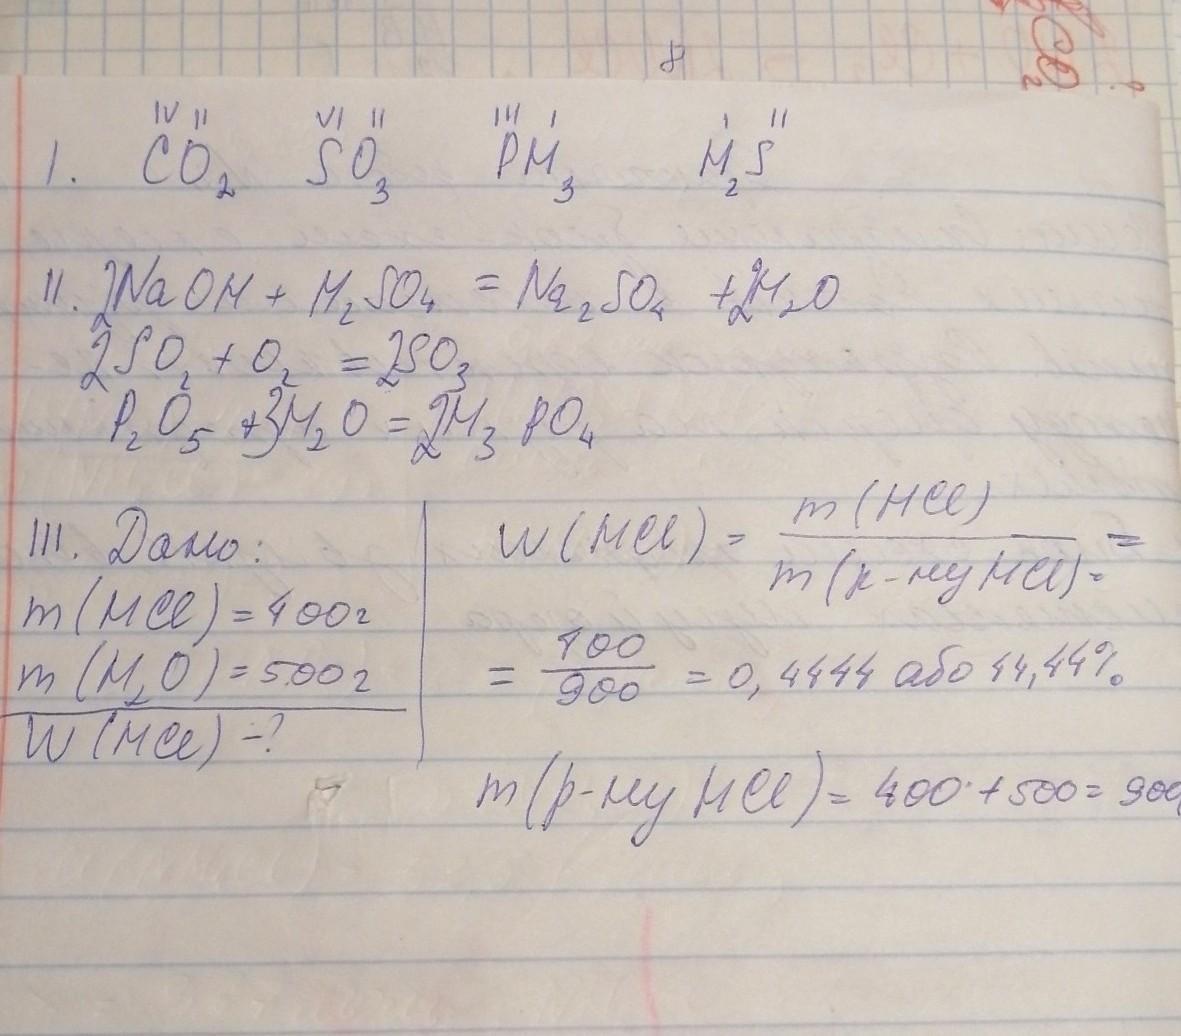 8
CO₂
IV II VI II III I I II
I. CO₂ SO₃ PH₃ H₂S
II. 2NaOH + H₂SO₄ = Na₂SO₄ + 2H₂O
2SO₂ + O₂ = 2SO₃
P₂O₅ + 3H₂O = 2H₃PO₄
III. Дано:
m(HCl) = 400г
m(H₂O) = 500г
W(HCl) - ?
W(HCl) = m(HCl) / m(р-ну HCl) =
= 400 / 900 = 0,4444 або 44,44%
m(р-ну HCl) = 400 + 500 = 900